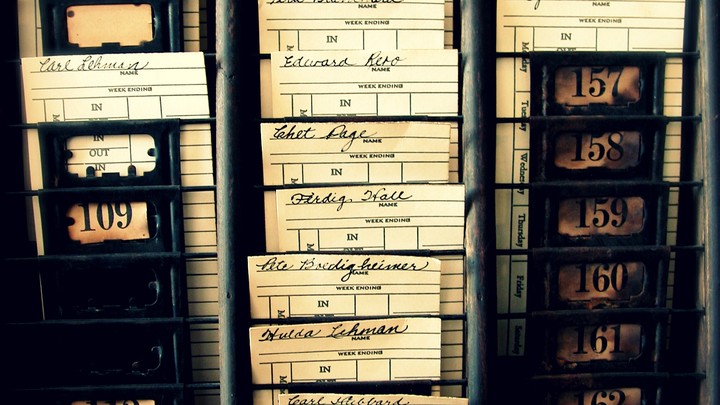 Carl Lehman
NAME
WEEK ENDING
IN
IN
OUT
IN
109
NAME
WEEK ENDING
IN
Edward Rero
NAME
WEEK ENDING
IN
Chet Page
NAME
WEEK ENDING
IN
Hall
NAME
WEEK ENDING
IN
Pete Boidigheimer
NAME
WEEK ENDING
IN
Hulda Lehman
NAME
WEEK ENDING
IN
Carl Hibbard
NAME
WEEK ENDING
IN
Monday
Tuesday
Wednesday
Thursday
Friday
157
158
159
160
161
162